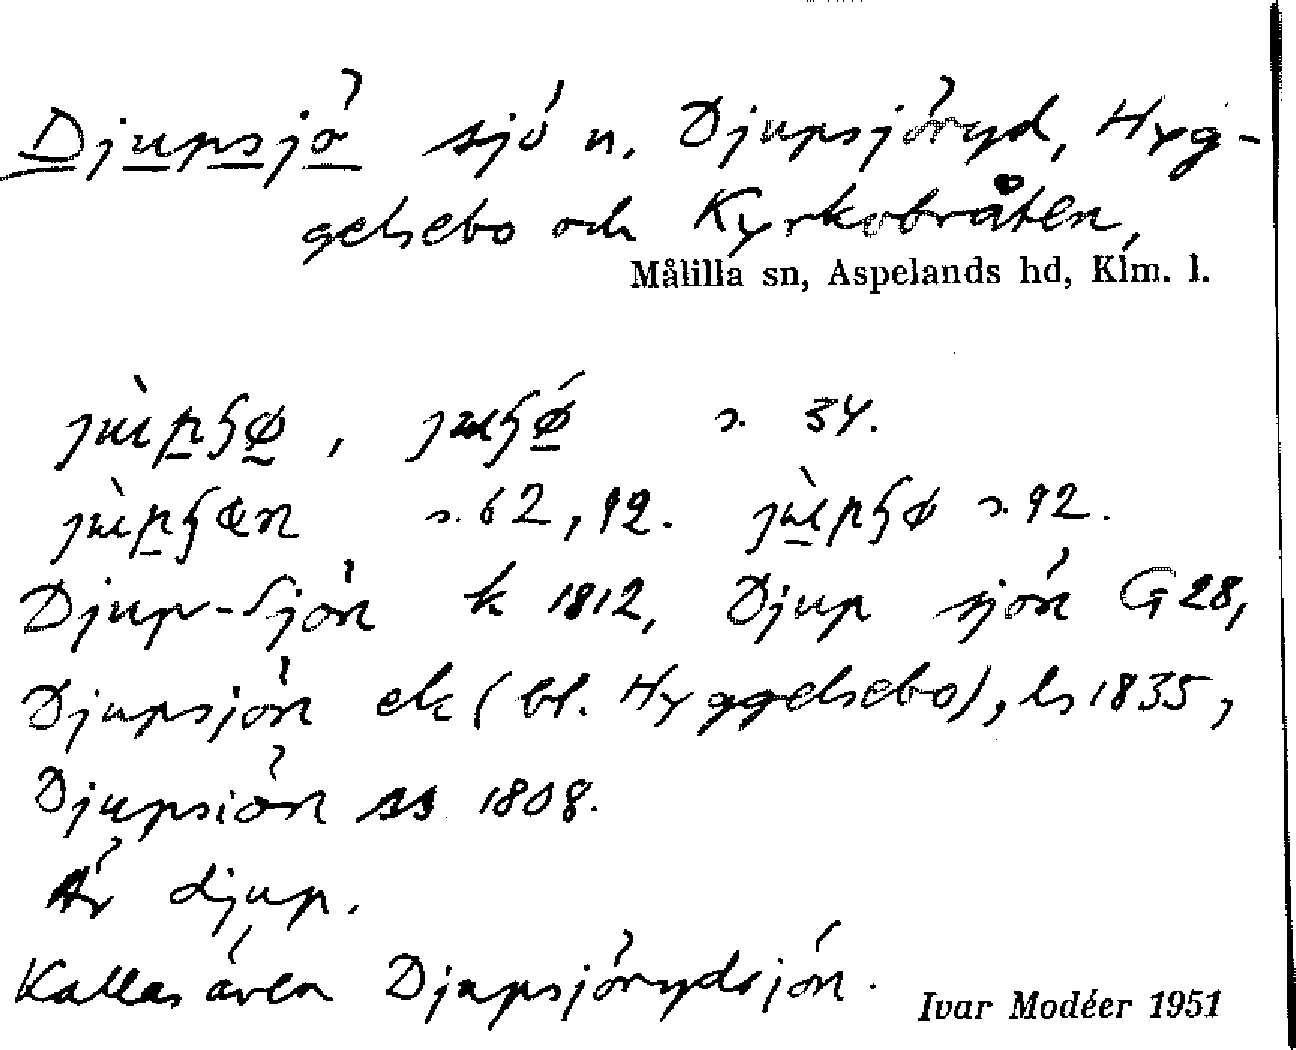 Djupsjö sjö n. Djupsjöryd, Hyg-
gelsebo och Kyrkobråten,
Målilla sn, Aspelands hd, Klm. l.
s. 34.
s. 62, 92. s. 92.
Djup-Sjön k 1812, Djup sjön G 28,
Djupsjön ek (bl. Hyggelsebo), ls 1835,
Djupsiön ss 1808.
Är djup.
Kallas även Djupsjörydsjön.
Ivar Modéer 1951